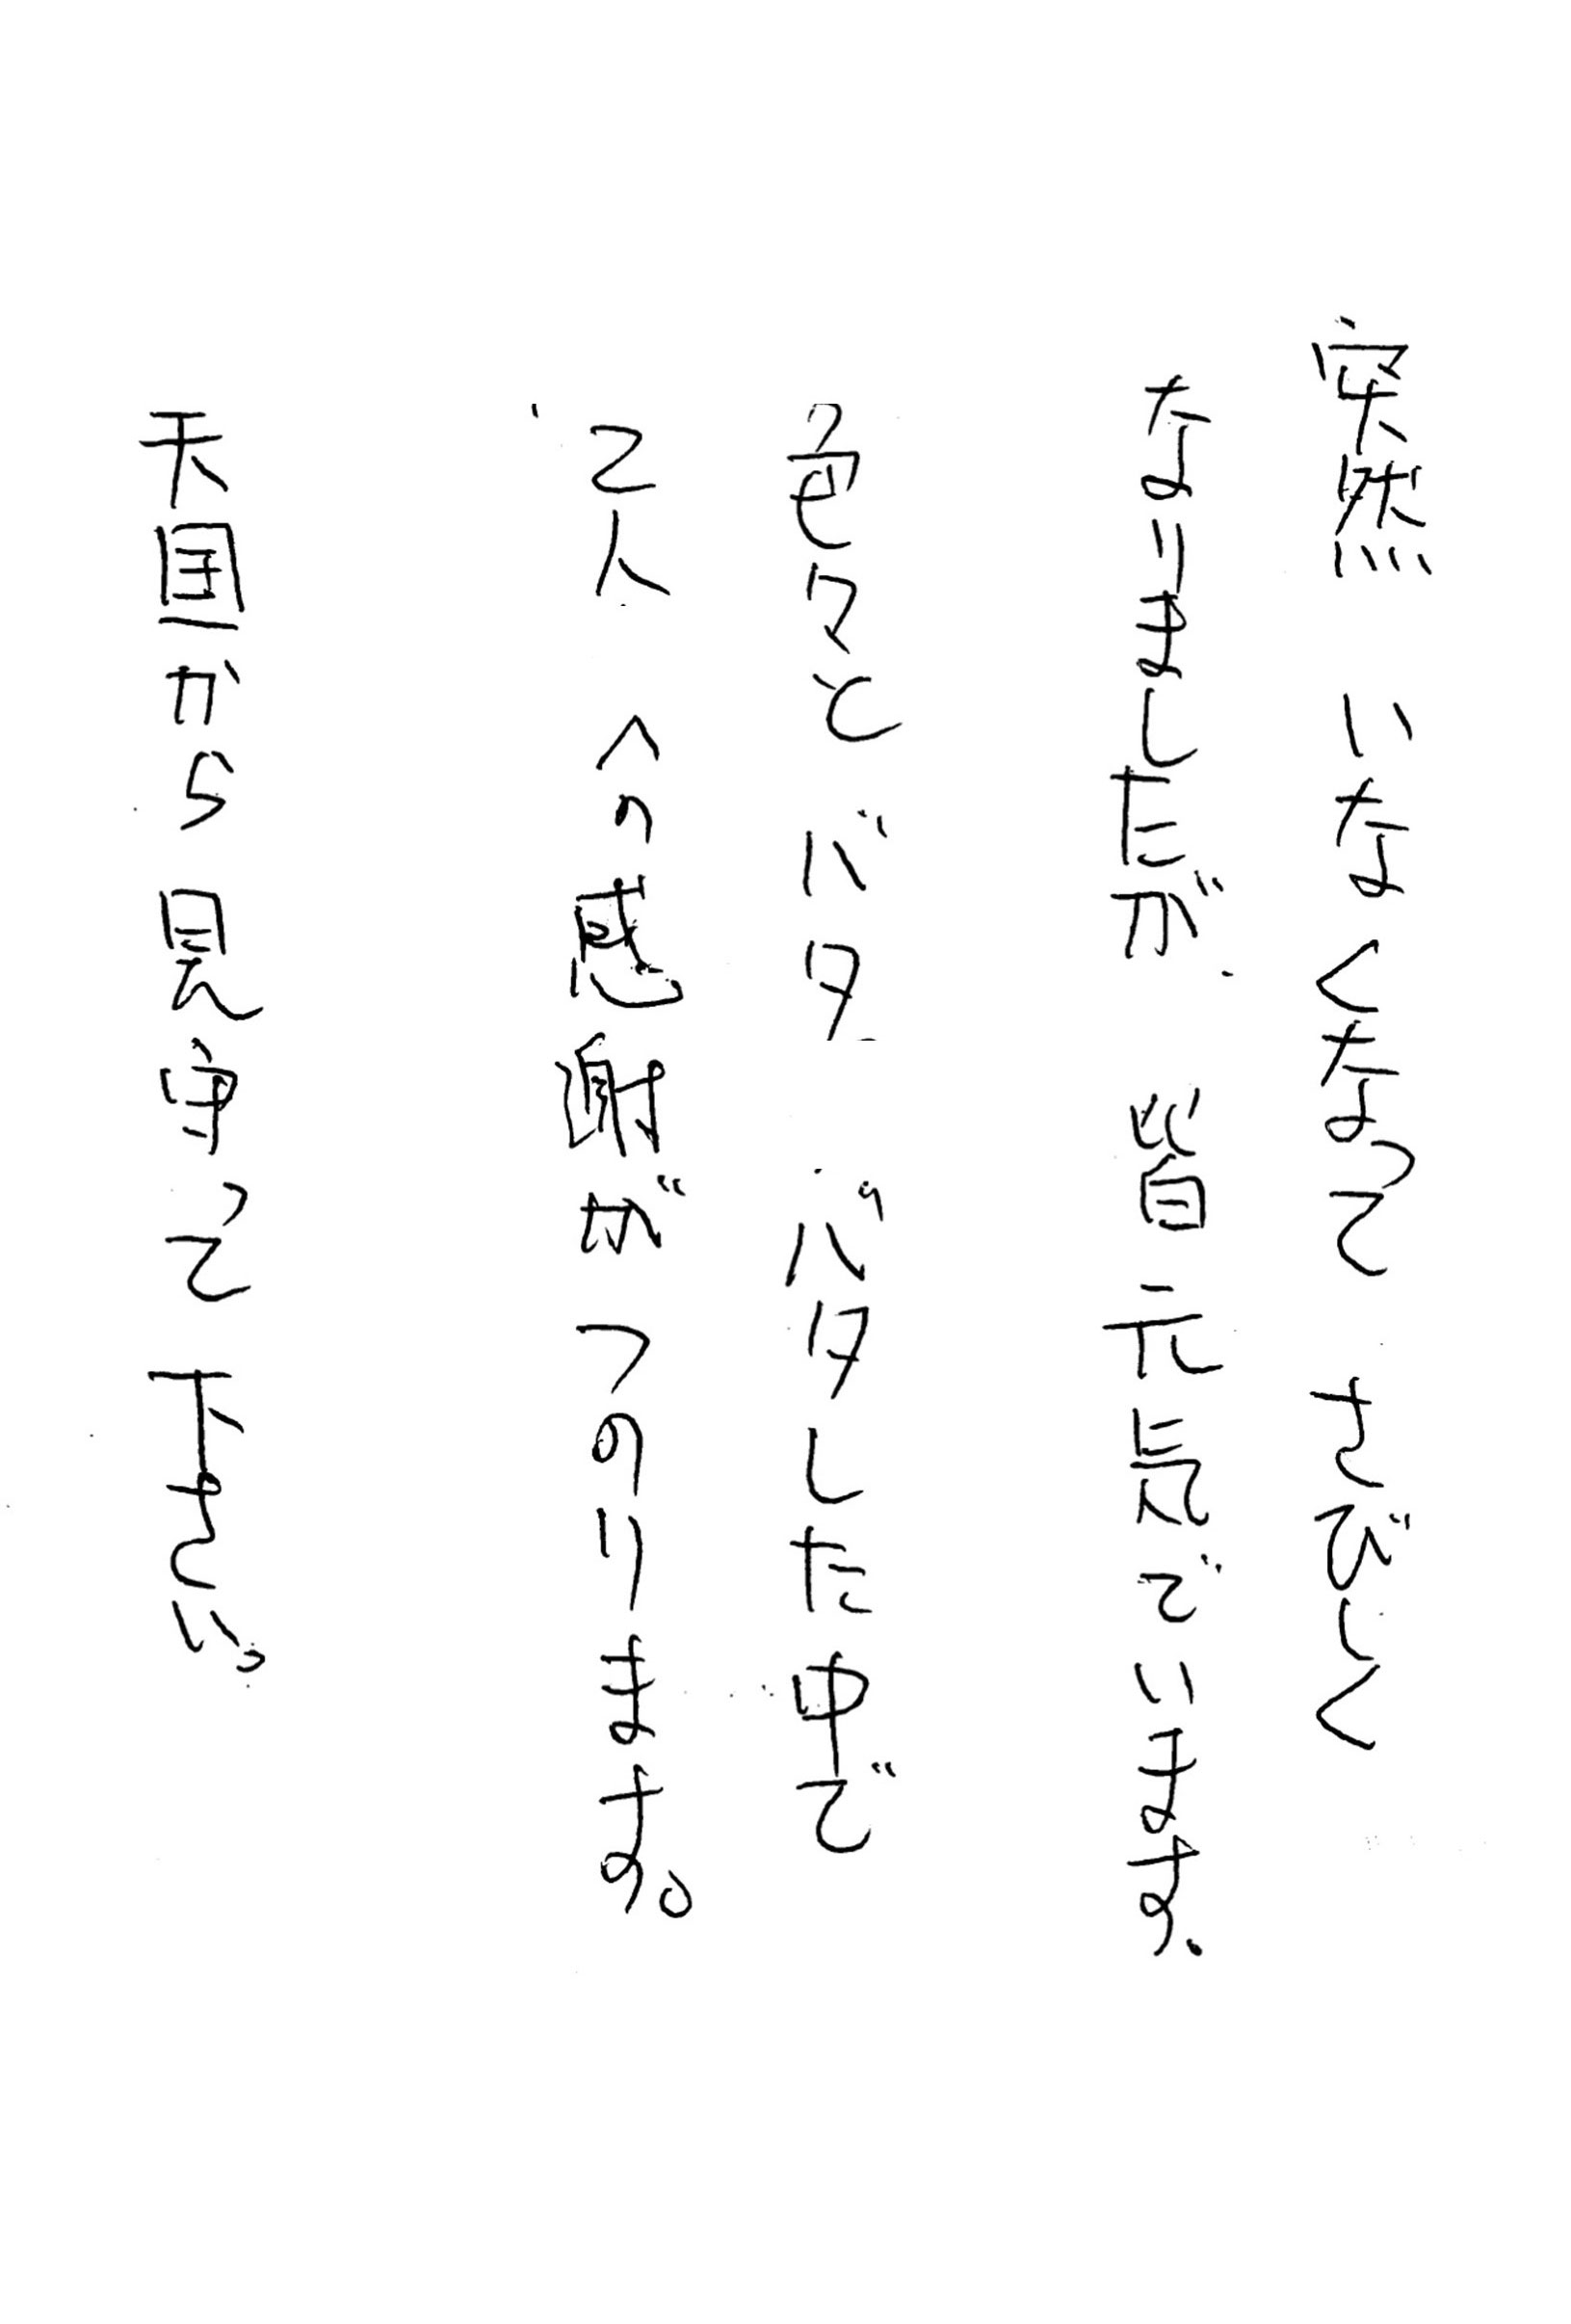 突然 いなくなって さびしく
なりましたが、皆元気でいます、
色々と バタ バタした中で
乙人への感謝がつのります。
天国から見守って下さい。